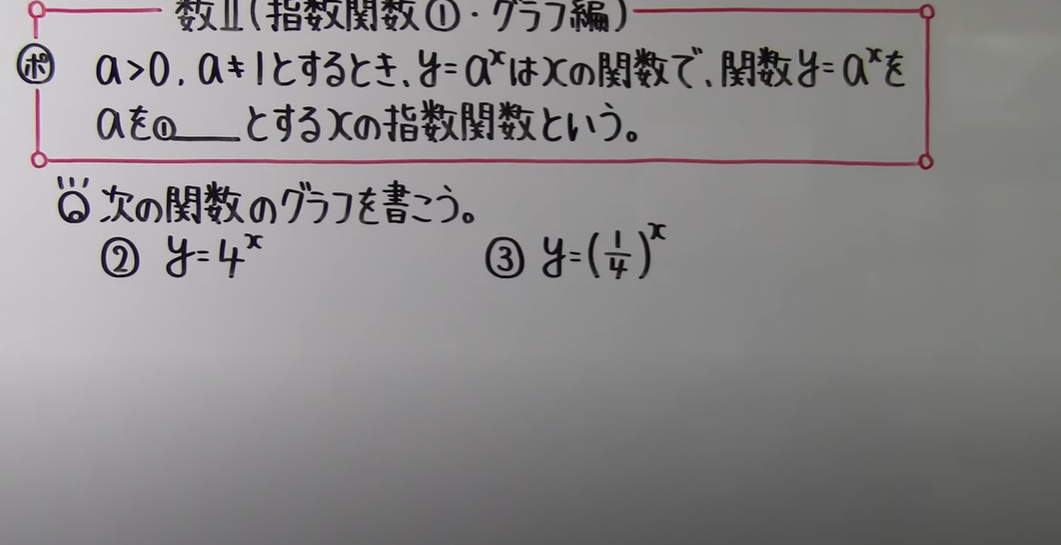 数Ⅱ(指数関数①・グラフ編)
ポ a>0, a≠1とするとき、y=a^xはxの関数で、関数y=a^xを
aを①___とするxの指数関数という。
次の関数のグラフを書こう。
② y=4^x ③ y=(1/4)^x